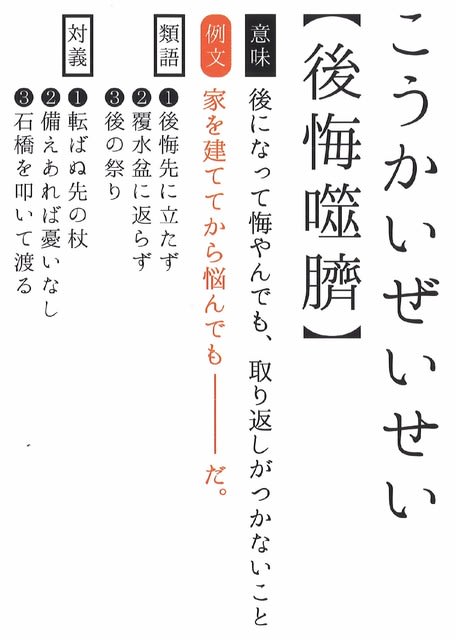 こうかいぜいせい
【後悔噬臍】
意味 後になって悔やんでも、取り返しがつかないこと
例文 家を建ててから悩んでも――だ。
類語 ❶後悔先に立たず
❷覆水盆に返らず
❸後の祭り
対義 ❶転ばぬ先の杖
❷備えあれば憂いなし
❸石橋を叩いて渡る